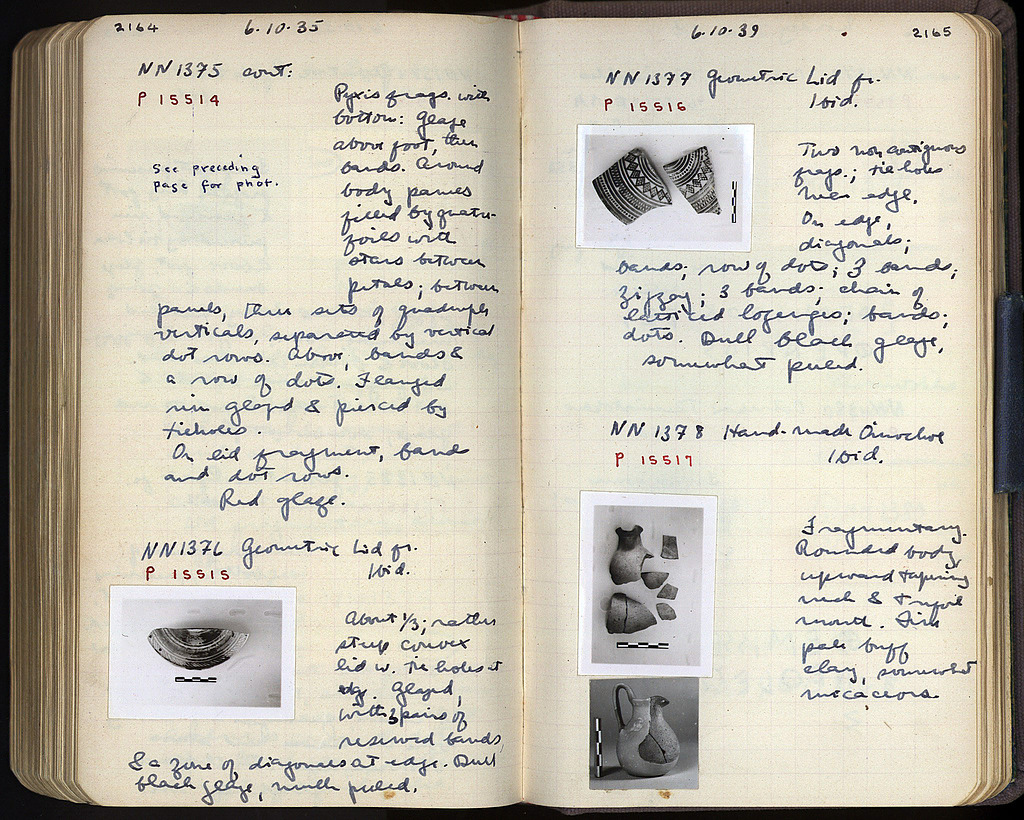 2164
6·10·35
NN 1375 cont:
P 15514
Pyxis frags. with
bottom: Glaze
above foot, then
bands. Around
body panels
filled by quatre-
foils with
stars between
petals; between
See preceding
page for phot.
panels, three sets of quadruple
verticals, separated by vertical
dot rows. Above, bands &
a row of dots. Flanged
rim glazed & pierced by
tieholes.
On lid fragment, bands
and dot rows.
Red glaze.
NN 1376 Geometric Lid fr.
P 15515
Ibid.
About 1/3; rather
steep convex
lid w. tie holes at
edge. Glazed,
with 3 pairs of
reserved bands
& a zone of diagonals at edge. Dull
black glaze, much peeled.
6·10·39
2165
NN 1377 Geometric Lid fr.
P 15516
Ibid.
Two non contiguous
frags.; tie holes
near edge.
On edge,
diagonals;
bands; row of dots; 3 bands;
zigzag; 3 bands; chain of
latticed lozenges; bands;
dots. Dull black glaze,
somewhat peeled.
NN 1378 Hand-made Oinochoe
P 15517
Ibid.
Fragmentary.
Rounded body,
upward tapering
neck & trefoil
mouth. Fine
pale buff
clay, somewhat
micaceous.